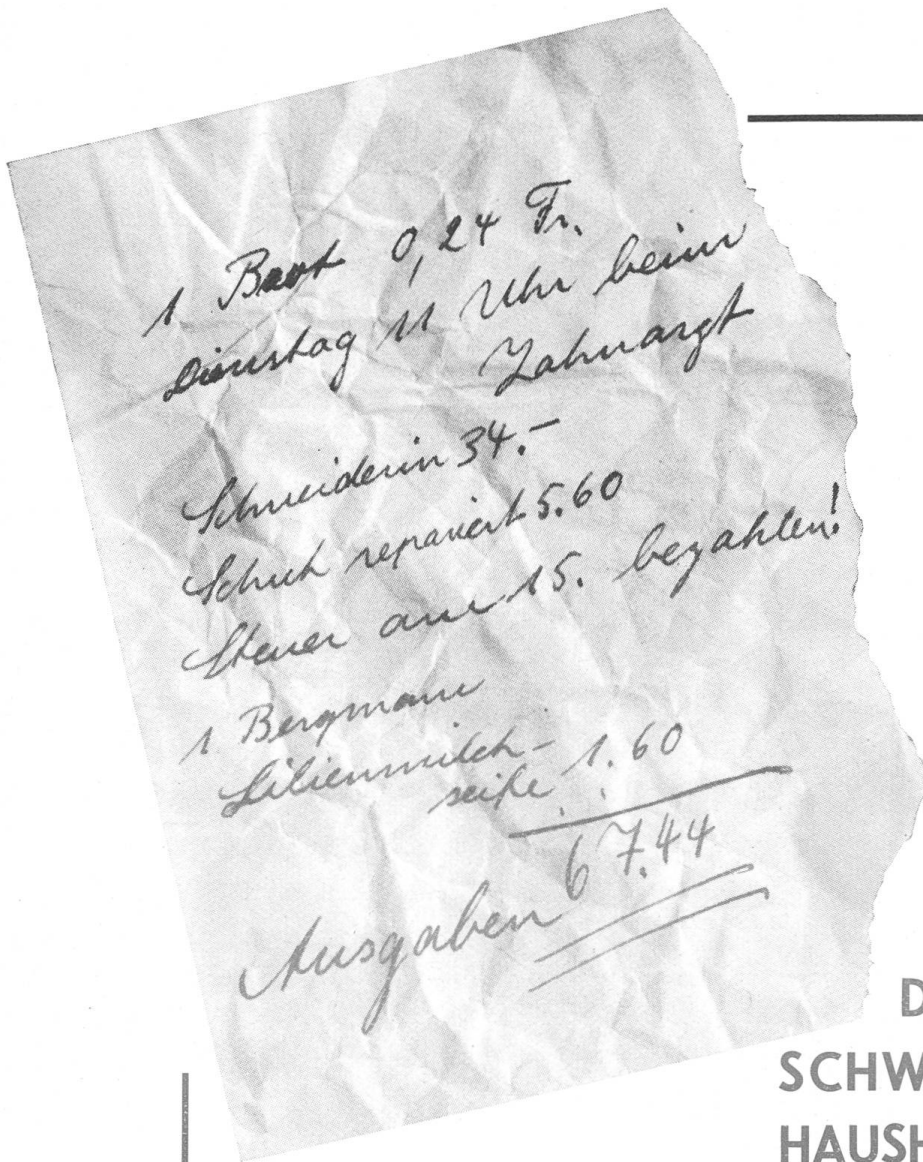 1 Brot 0,24 Fr.
Dienstag 11 Uhr beim
Zahnarzt
Schneiderin 34.–
Schuh repariert 5.60
Steuer am 15. bezahlen!
1 Bergmann
Lilienmilch-
seife 1.60
67.44
Ausgaben
D
SCHW
HAUSH